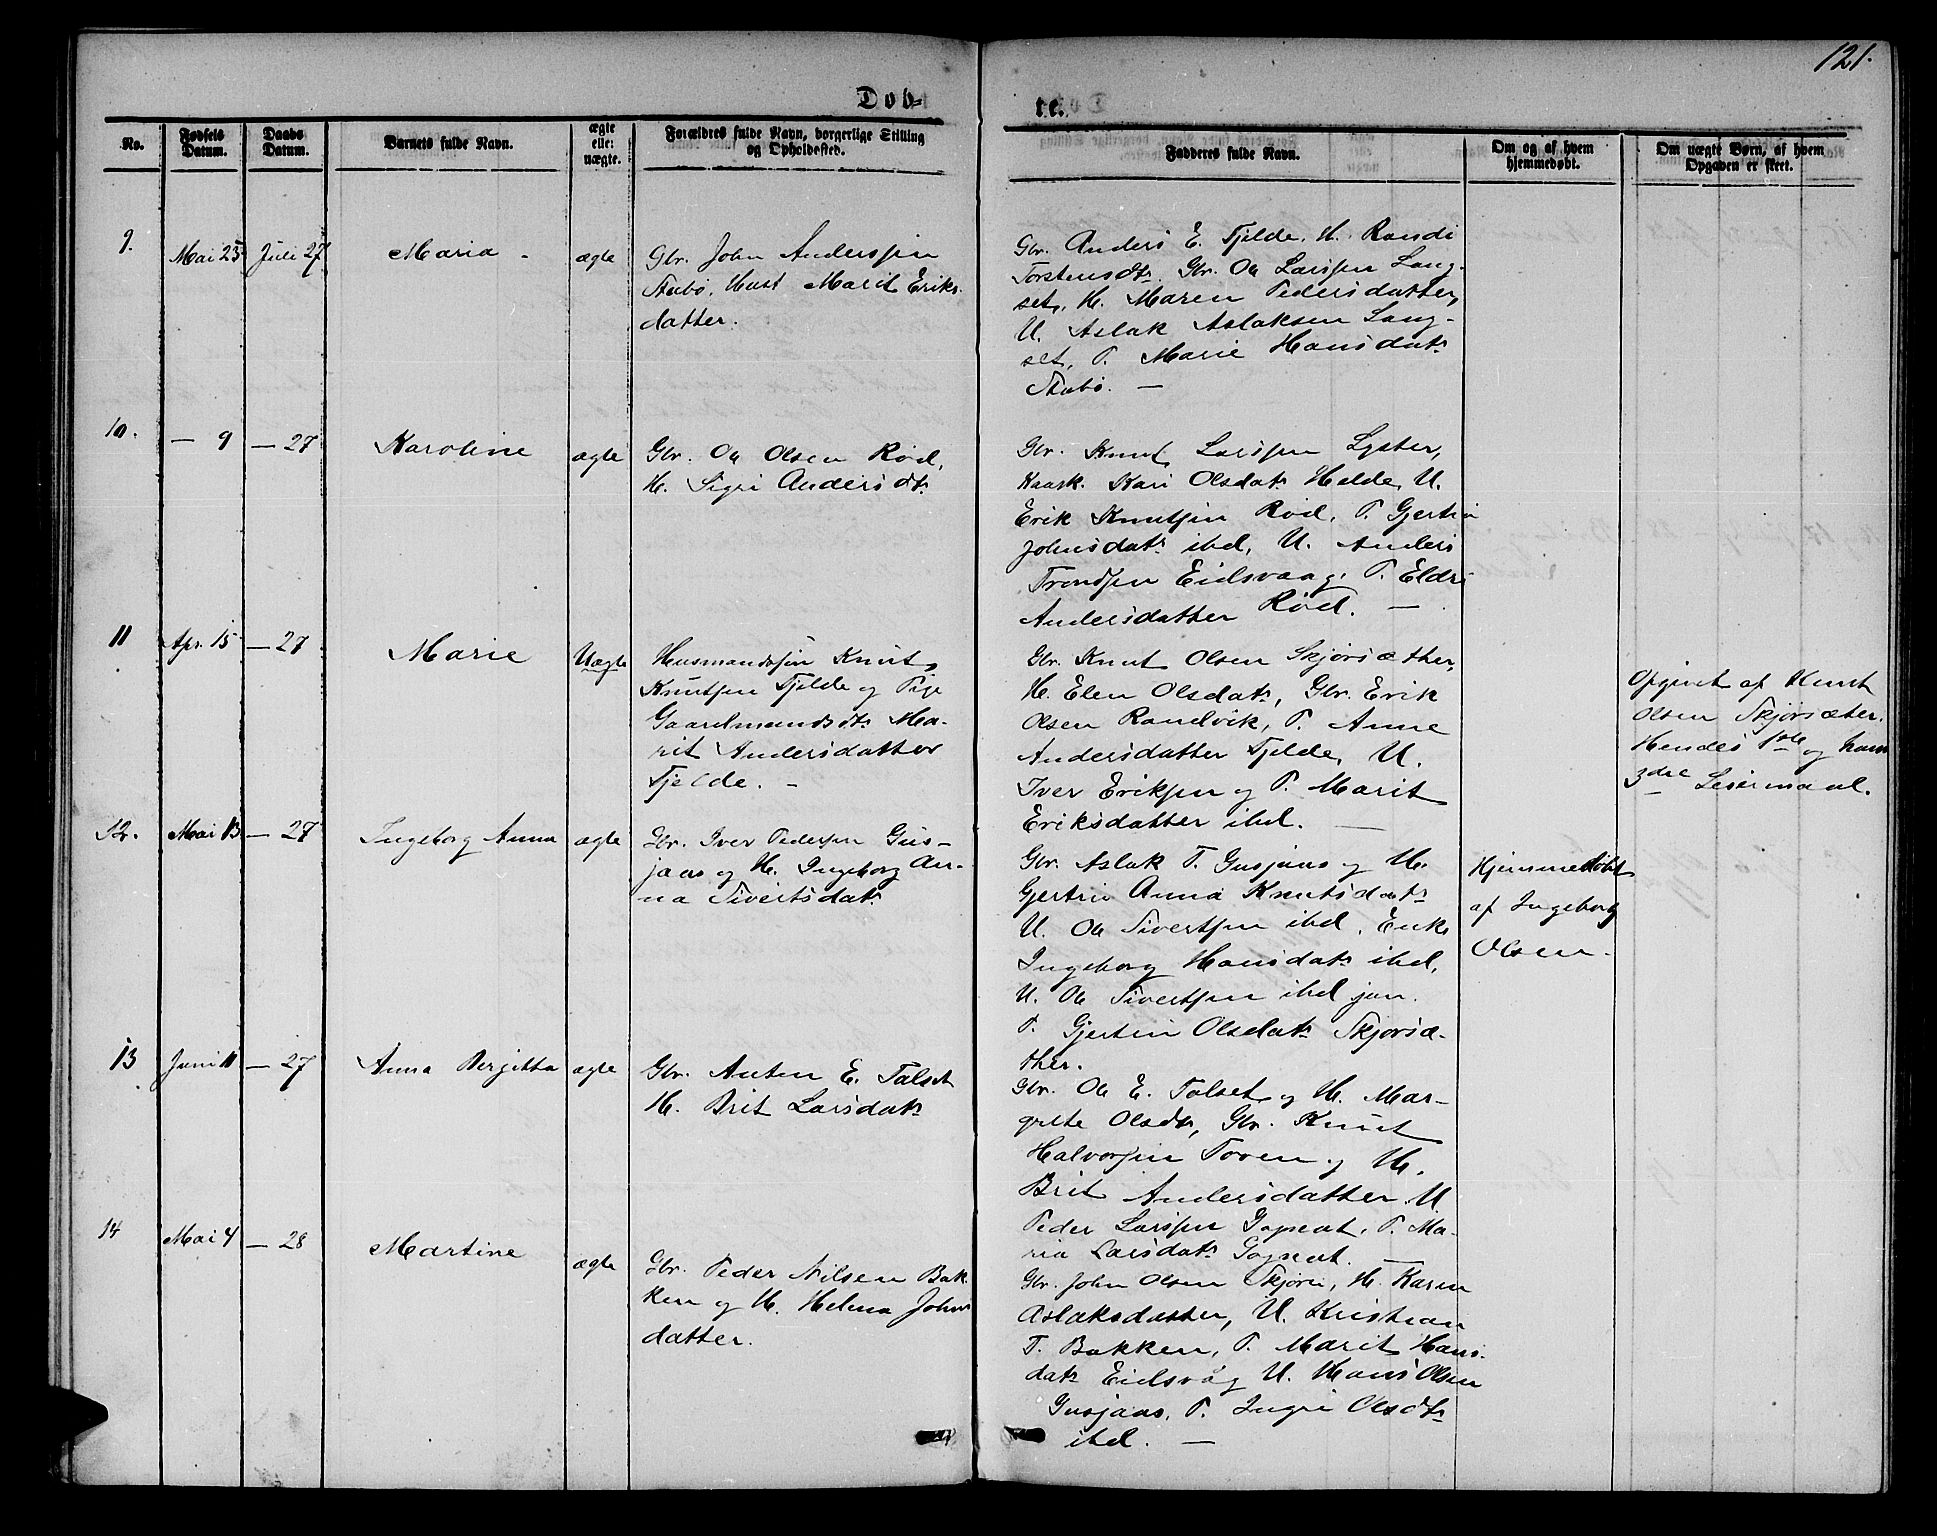 121.
Døb-
te.
No.
Fødsels Datum.
Daabs Datum.
Barnets fulde Navn.
ægte eller uægte.
Forældres fulde Navn, borgerlige Stilling og Opholdssted.
Fadderes fulde Navn.
Om og af hvem hjemmedøbt.
Om uægte Børn, af hvem Opgaven er skeet.
9.
Mai 25
Juli 27
Maria
ægte
Gbr. John Anderssen
Stubø, Hust Marit Eriks
datter.
Gbr. Anders E. Tjelde, H. Randi
Torstensdtr, Gbr. Ole Larssen Lang-
set, H. Maren Pedersdatter,
U. Aslak Aslaksen Lang-
set, P. Marie Hansdatr
Stubø. —
10.
— 9
— 27
Karoline
ægte
Gbr. Ole Olsen Rød,
H. Sigri Andersdtr
Gbr. Knut Larssen Lyster,
Kaark. Kari Olsdatr Helde, U.
Erik Knutsen Rød, P. Gjertri
Johnsdatr ibd, U. Anders
Trondsen Eidsvaag, P. Eldri
Andersdatter Rød. —
11
Apr. 15
— 27
Marie
Uægte
Husmandssøn Knut
Knutsen Tjelde og Pige
Gaardmandsdtr Ma-
rit Andersdatter
Tjelde. —
Gbr. Knut Olsen Skjørsæther,
H. Elen Olsdatr, Gbr. Erik
Olsen Randvik, P. Anne
Andersdatter Tjelde, U.
Iver Eriksen og P. Marit
Eriksdatter ibd. —
Opgivet af Knut
Olsen Skjørsæter.
Hendes 1ste og hans
3die Leiermaal.
12.
Mai 13
— 27
Ingeborg Anna
ægte
Gbr. Iver Pedersen Gus-
jaas og H. Ingeborg An-
na Sivertsdatr
Gbr. Aslak T. Gusjaas og H.
Gjertri Anna Knutsdatr
U. Ole Sivertsen ibd, Enke
Ingeborg Hansdatr ibd,
U. Ole Sivertsen ibd jun.
P. Gjertin Olsdatr Skjørsæ-
ther.
Hjemmedøbt
af Ingeborg
Olsen.
13
Juni 11
— 27
Anna Bergitta
ægte
Gbr. Anten E. Talset
H. Brit Larsdatr
Gbr. Ole E. Talset og H. Mar-
grete Olsdtr, Gbr. Knut
Halvorsen Toven og H.
Brit Andersdatter, U
Peder Larssen Gagnat, P. Ma-
ria Larsdatr Gagnat. —
14
Mai 4
— 28
Martine
ægte
Gbr. Peder Nilsen Bak-
ken og H. Helena Johns
datter.
Gbr. John Olsen Skjørn, H. Karen
Aslaksdatter, U. Kristian
T. Bakken, P. Marit Hans-
datr Eidsvåg U. Hans Olsen
Gusjaas, P. Ingri Olsdtr
ibd. —